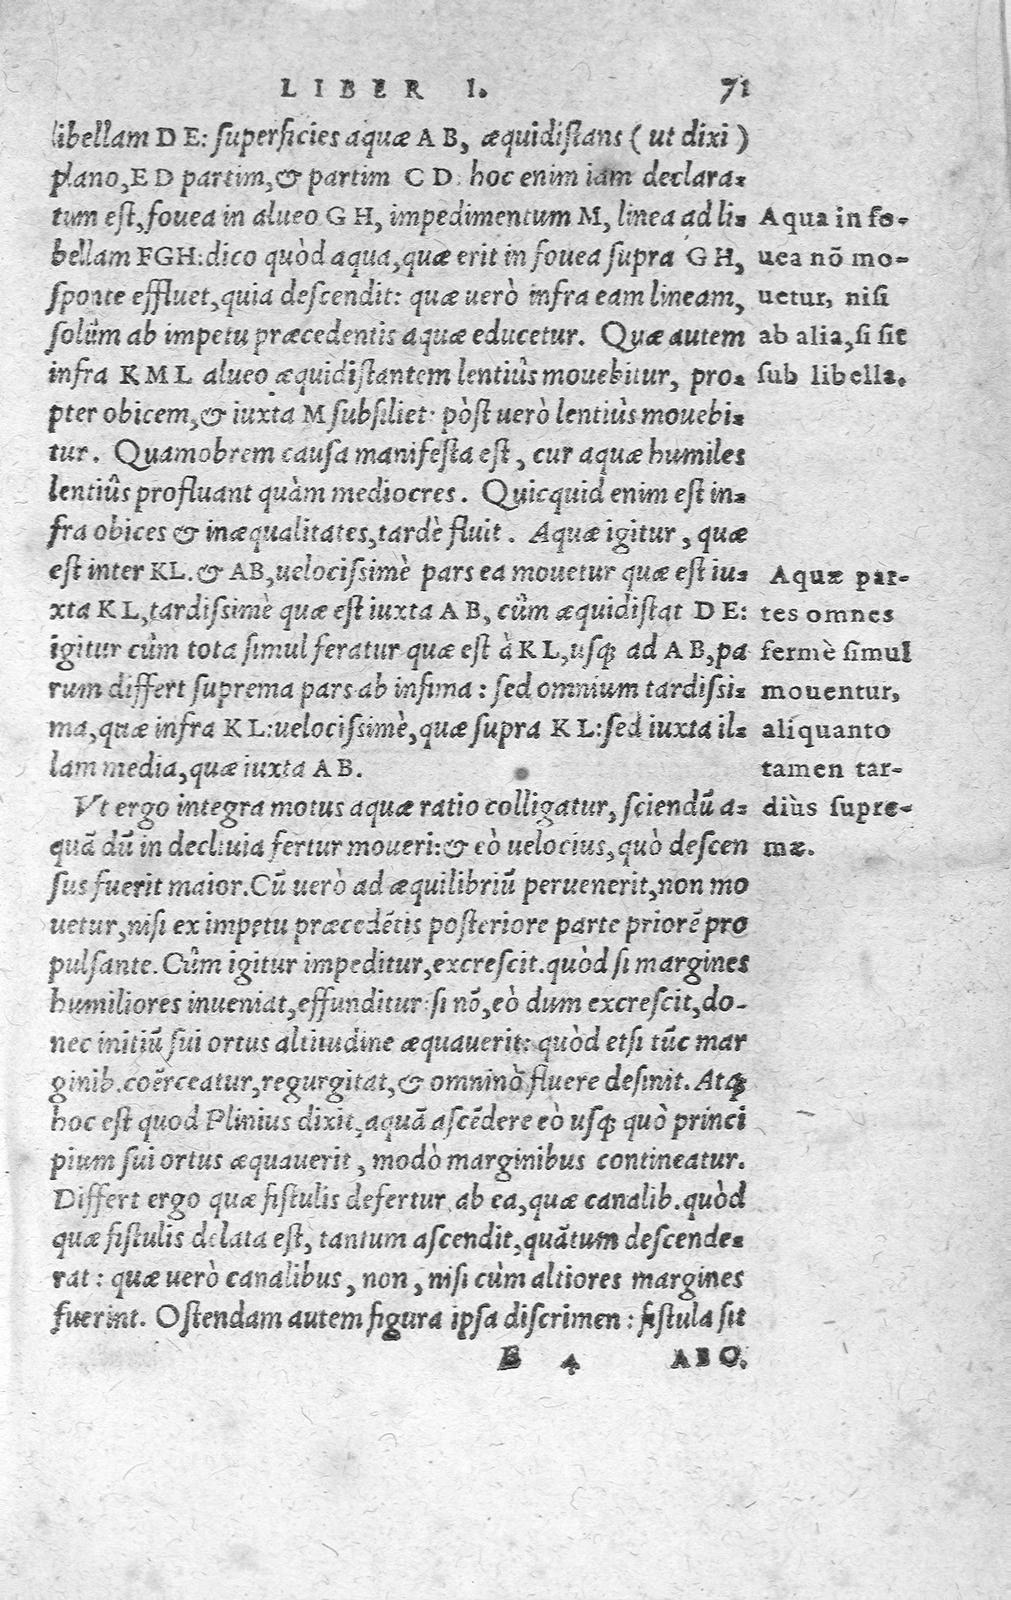 LIBER I. 71
libellam DE: superficies aquæ AB, æquidistans (ut dixi)
plano, ED partim, & partim CD. hoc enim iam declara-
tum est, fouea in alueo GH, impedimentum M, linea ad li-
bellam FGH: dico quòd aqua, quæ erit in fouea supra GH,
sponte effluet, quia descendit: quæ uerò infra eam lineam,
solûm ab impetu præcedentis aquæ educetur. Quæ autem
infra KML alueo æquidistantem lentiûs mouebitur, pro-
pter obicem, & iuxta M subsiliet: pòst uerò lentiùs mouebi-
tur. Quamobrem causa manifesta est, cur aquæ humiles
lentiûs profluant quàm mediocres. Quicquid enim est in-
fra obices & inæqualitates, tardè fluit. Aquæ igitur, quæ
est inter KL. & AB, uelocissimè pars ea mouetur quæ est iu-
xta KL, tardissimè quæ est iuxta AB, cûm æquidistat DE:
igitur cûm tota simul feratur quæ est à KL, usq; ad AB, pa
rum differt suprema pars ab infima: sed omnium tardissi-
ma, quæ infra KL: uelocissimè, quæ supra KL: sed iuxta il-
lam media, quæ iuxta AB.
Vt ergo integra motus aquæ ratio colligatur, sciendū a-
quā dū in decliuia fertur moueri: & eò uelocius, quò descen
sus fuerit maior. Cū uerò ad æquilibriū peruenerit, non mo
uetur, nisi ex impetu præcedētis posteriore parte priorē pro
pulsante. Cûm igitur impeditur, excrescit. quòd si margines
humiliores inueniat, effunditur: si nō, eò dum excrescit, do-
nec initiū sui ortus altitudine æquauerit: quòd etsi tūc mar
ginib. coërceatur, regurgitat, & omninò fluere desinit. Atq;
hoc est quod Plinius dixit, aquā ascēdere eò usq; quò princi
pium sui ortus æquauerit, modò marginibus contineatur.
Differt ergo quæ fistulis defertur ab ea, quæ canalib. quòd
quæ fistulis delata est, tantum ascendit, quātum descende-
rat: quæ uerò canalibus, non, nisi cùm altiores margines
fuerint. Ostendam autem figura ipsa discrimen: fistula sit
E 4 ABC.
Aqua in fo-
uea nō mo-
uetur, nisi
ab alia, si sit
sub libella.
Aquæ par-
tes omnes
fermè simul
mouentur,
aliquanto
tamen tar-
diùs supre-
mæ.